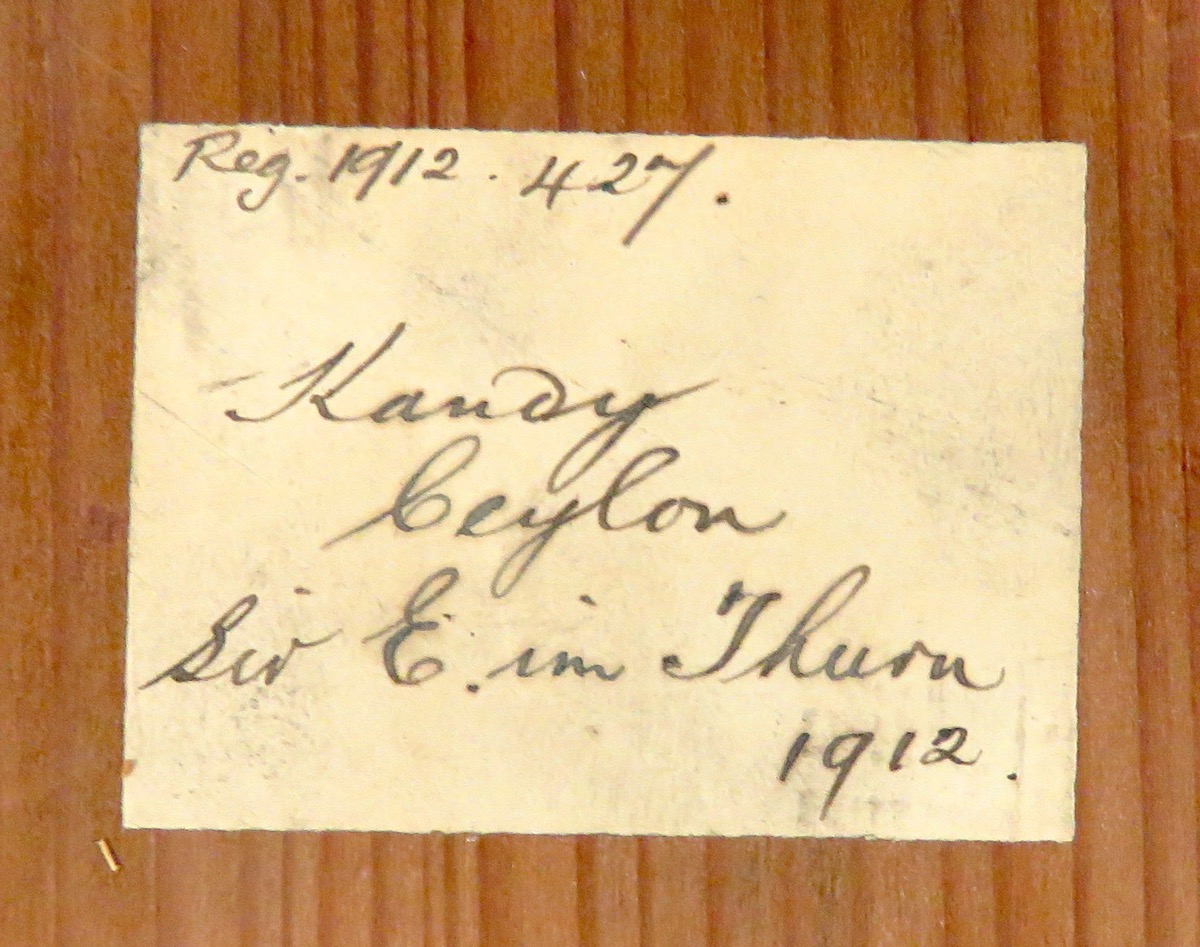 Reg. 1912. 427.
Kandy
Ceylon
Sir E. im Thurn
1912.